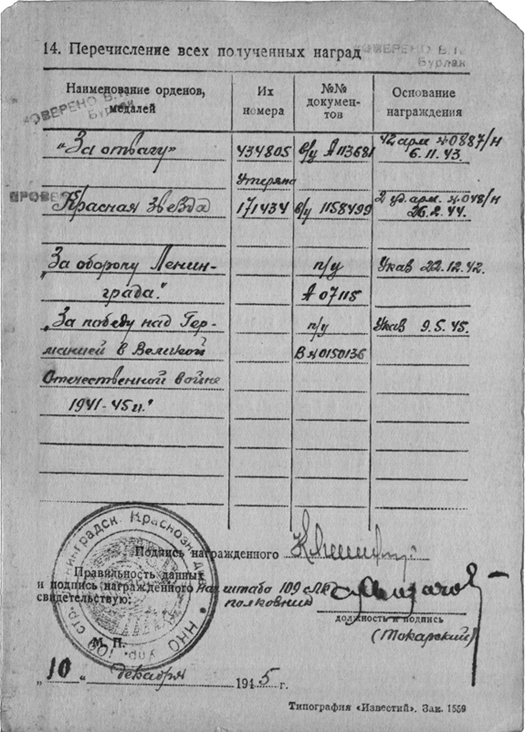 14. Перечисление всех полученных наград
ОВЕРЕНО В.К.
Бурлак
Наименование орденов, медалей
Их номера
№№ документов
Основание награждения
ОВЕРЕНО В.К.
Бурлак
„За отвагу" 434805 в/у А 113681 42 арм. №0887/н 6.11.43.
утеряна
ПРОВЕРЕ
Красная Звезда 171434 в/у 1158499 2 уд. арм. №048/н 26.2.44.
„За оборону Ленин- п/у Указ 22.12.42.
града." А 07115
„За победу над Гер- п/у Указ 9.5.45.
манией в Великой В №0150136
Отечественной войне
1941-45 гг."
Подпись награжденного
Правильность данных
и подпись награжденного Нач штаба 109 сЛК
свидетельствую: полковник
должность и подпись
(Токарский)
М. П.
„10" декабря 1945 г.
Типография «Известий». Зак. 1559